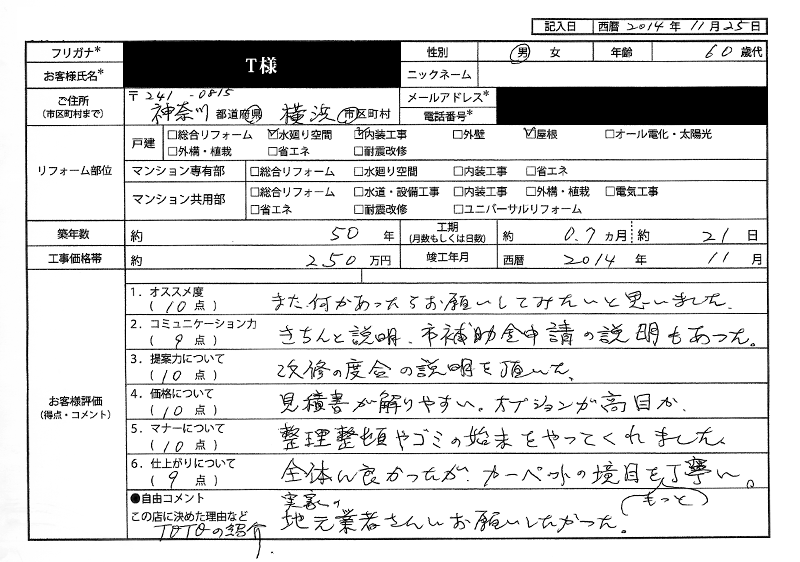 記入日 西暦 2014年 11月25日
フリガナ* T様 性別 男 女 年齢 60 歳代
お客様氏名* ニックネーム
ご住所 (市区町村まで) 〒241-0815 神奈川 都道府県 横浜 市区町村 メールアドレス*
電話番号*
リフォーム部位 戸建 □総合リフォーム ☑水廻り空間 ☑内装工事 □外壁 ☑屋根 □オール電化・太陽光
□外構・植栽 □省エネ □耐震改修
マンション専有部 □総合リフォーム □水廻り空間 □内装工事 □省エネ
マンション共用部 □総合リフォーム □水道・設備工事 □内装工事 □外構・植栽 □電気工事
□省エネ □耐震改修 □ユニバーサルリフォーム
築年数 約 50 年 工期 (月数もしくは日数) 約 0.7 カ月 約 21 日
工事価格帯 約 250 万円 竣工年月 西暦 2014 年 11 月
お客様評価 (得点・コメント)
1.オススメ度 (10点) また何かあったらお願いしてみたいと思いました。
2.コミュニケーション力 (9点) きちんと説明、市補助金申請の説明もあった。
3.提案力について (10点) 改修の度合の説明を頂いた。
4.価格について (10点) 見積書が解りやすい。オプションが高目か、
5.マナーについて (10点) 整理整頓やゴミの始末をやってくれました。
6.仕上がりについて (9点) 全体に良かったが、カーペットの境目をもっと丁寧に。
●自由コメント
この店に決めた理由など 実家の地元業者さんにお願いしたかった。
TOTOの紹介.